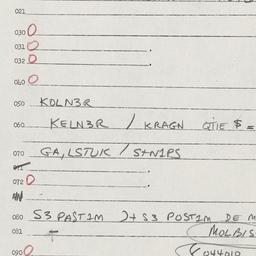 021
030 O
031 O
032 O
040 O
050 KOLN3R
060 KELN3R / KRAGN QTIE $ =
070 GA, LSTUK / S+N1PS
071
072 O
080 S3 PAST1M )+ S3 POST1M DE M
081 MOLBIS
090 O 044010